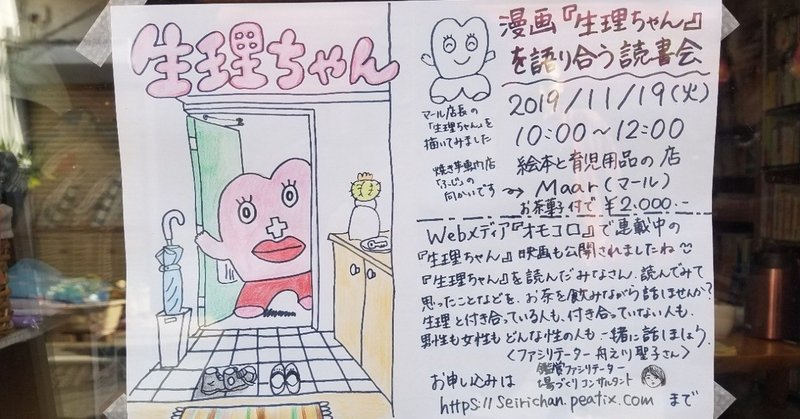 生理ちゃん
漫画『生理ちゃん』
を語り合う読書会
マール店長の
「生理ちゃん」を
描いてみました
2019/11/19(火)
10:00〜12:00
焼き芋専門店
「ふじ」の
向かいです
絵本と育児用品の店
→ Maar(マール)
お茶菓子付で ¥2.000.-
Webメディア『オモコロ』で連載中の
『生理ちゃん』映画も公開されましたね
『生理ちゃん』を読んだみなさん、読んでみて
思ったことなどを、お茶を飲みながら話しませんか?
生理と付き合っている人も、付き合っていない人も、
男性も女性もどんな性の人も一緒に話しましょう。
〈ファシリテーター 舟之川聖子さん〉
鑑賞ファシリテーター
場づくりコンサルタント
お申し込みは
https://seirichan.peatix.com まで